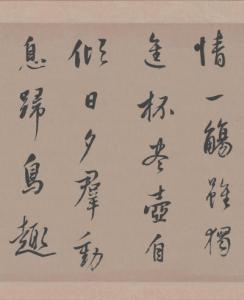 情一觴雖獨
進杯盡壺自
傾日夕群動
息歸鳥趣